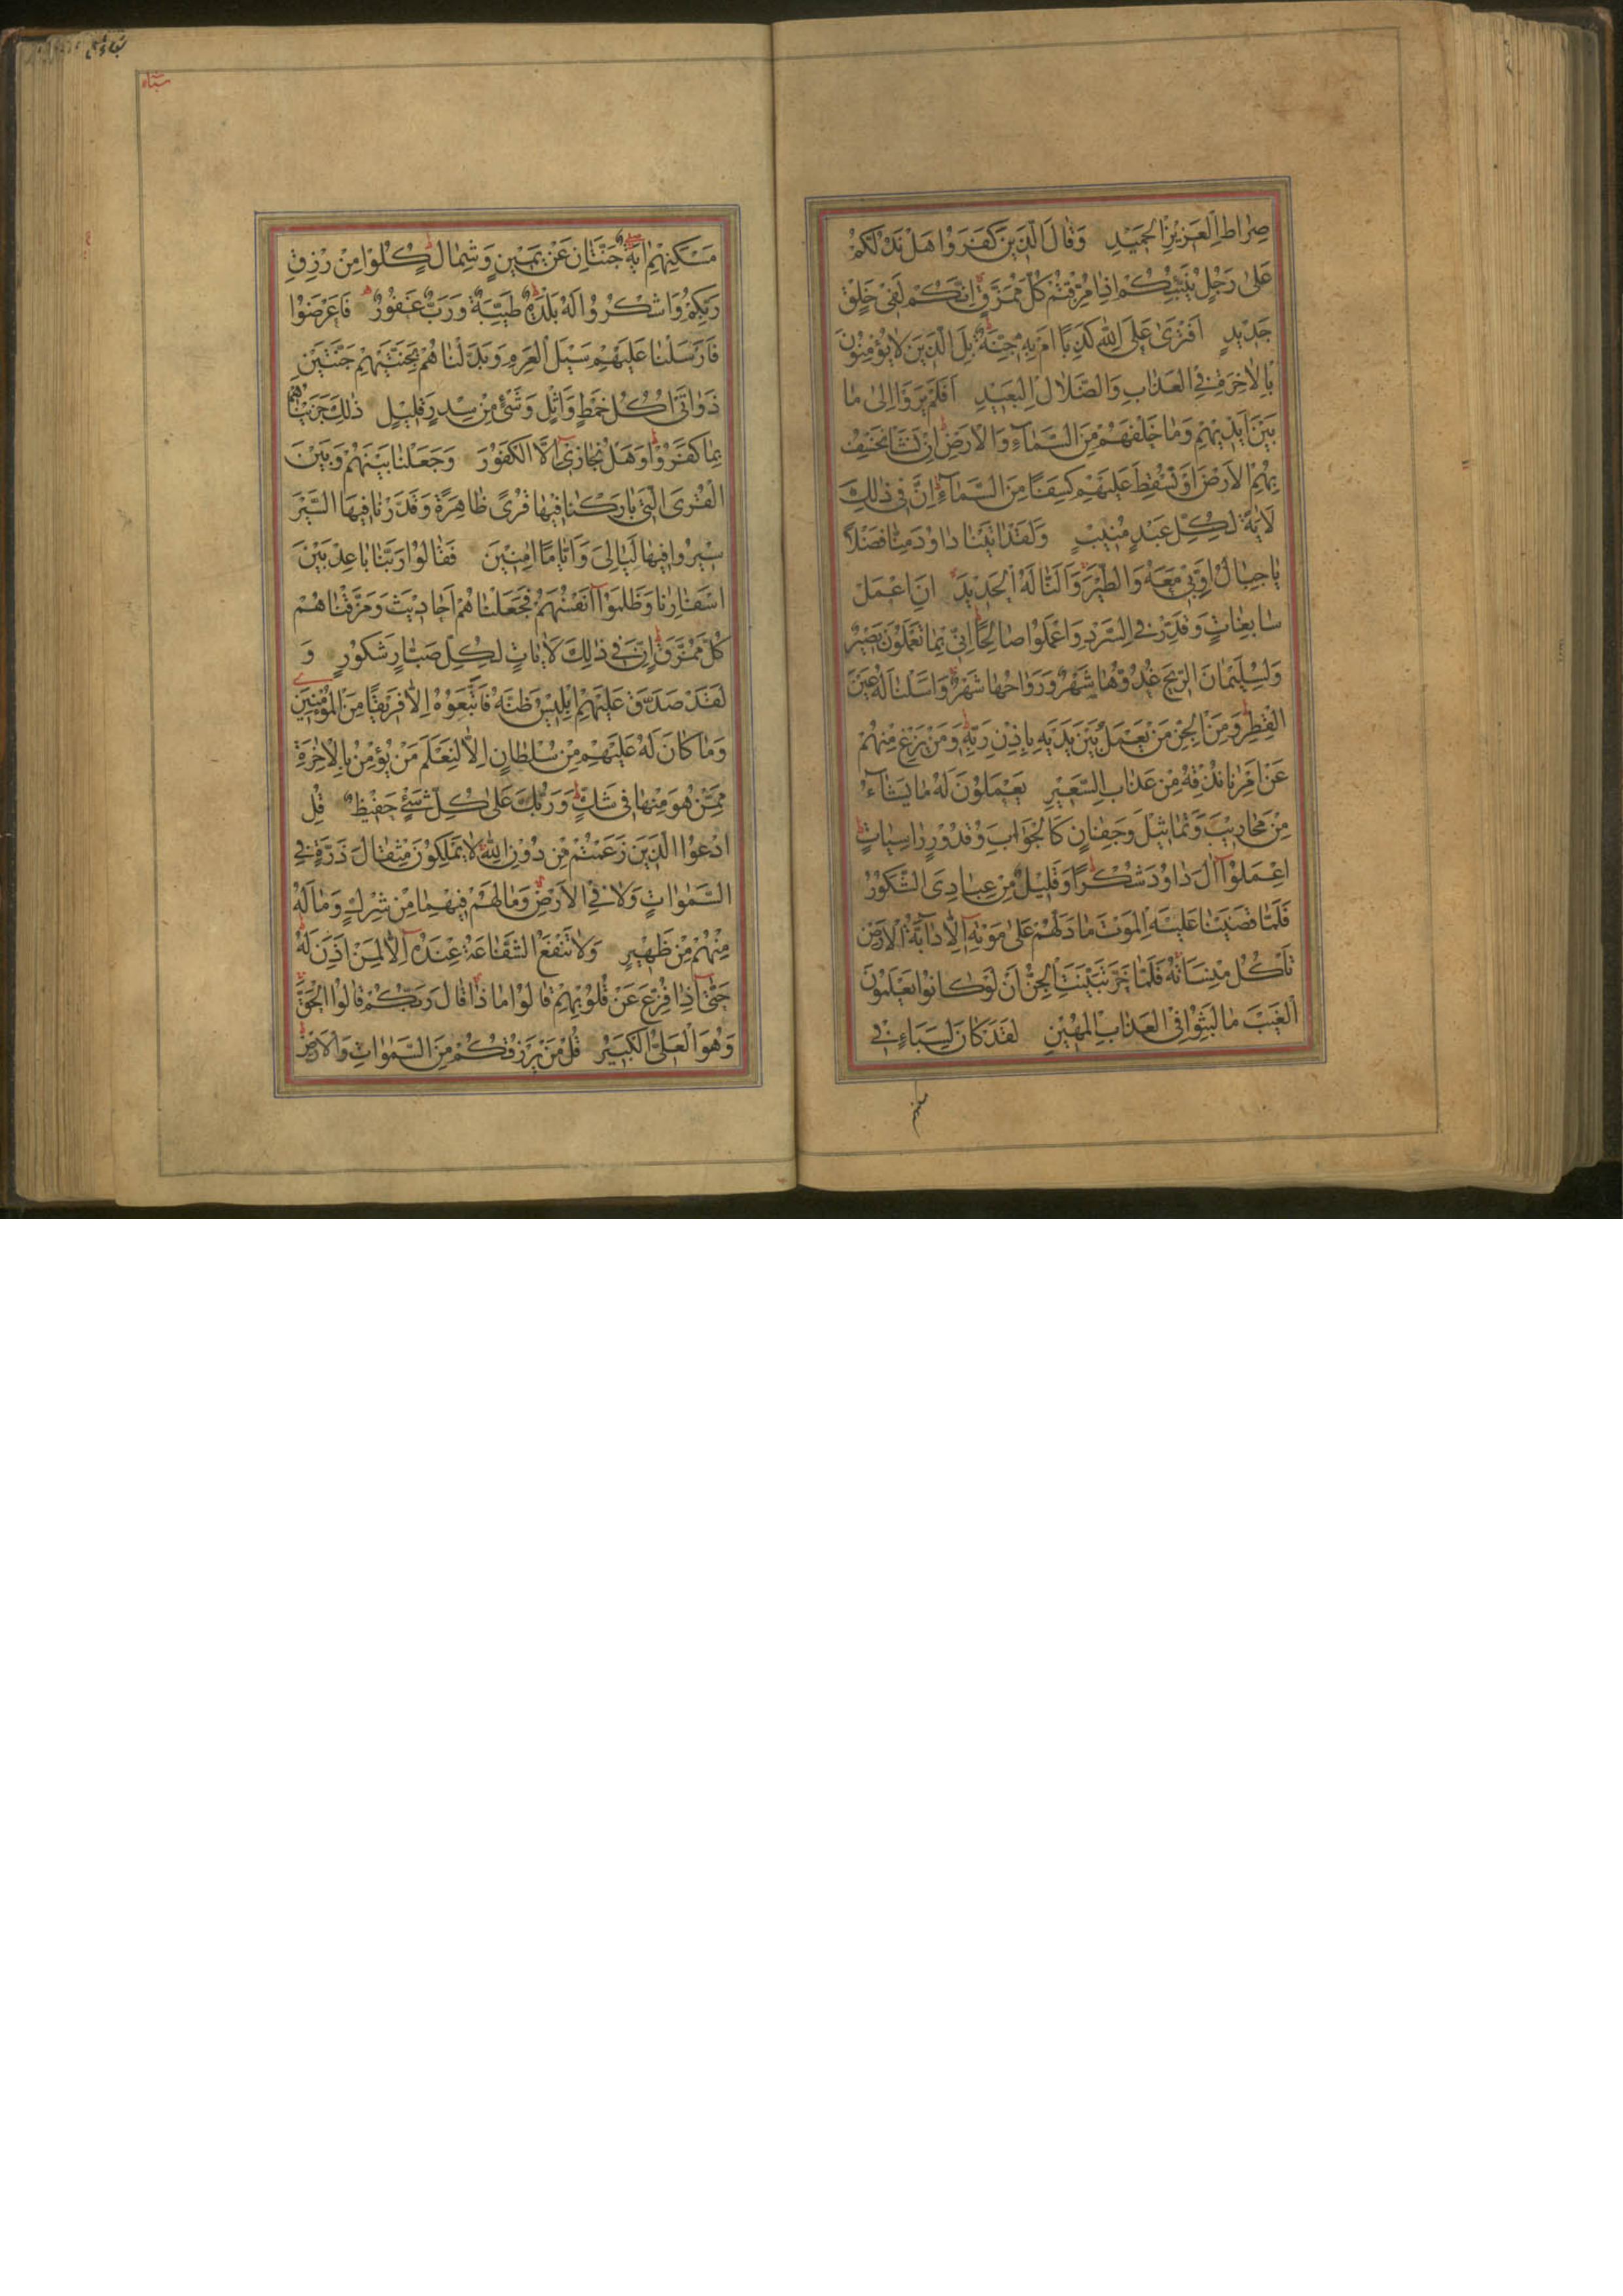 صِرَاطِ الْعَزِيزِ الْحَمِيدِ وَقَالَ الَّذِينَ كَفَرُوا هَلْ نَدُلُّكُمْ
عَلَىٰ رَجُلٍ يُنَبِّئُكُمْ اِذَا مُزِّقْتُمْ كُلَّ مُمَزَّقٍ اِنَّكُمْ لَفِي خَلْقٍ
جَدِيدٍ اَفْتَرَىٰ عَلَى اللّٰهِ كَذِبًا اَمْ بِهِ جِنَّةٌ بَلِ الَّذِينَ لَا يُؤْمِنُونَ
بِالْاٰخِرَةِ فِي الْعَذَابِ وَالضَّلَالِ الْبَعِيدِ اَفَلَمْ يَرَوْا اِلَىٰ مَا
بَيْنَ اَيْدِيهِمْ وَمَا خَلْفَهُمْ مِنَ السَّمَآءِ وَالْاَرْضِ اِنْ نَشَأْ نَخْسِفْ
بِهِمُ الْاَرْضَ اَوْ نُسْقِطْ عَلَيْهِمْ كِسَفًا مِنَ السَّمَآءِ اِنَّ فِي ذٰلِكَ
لَاٰيَةً لِكُلِّ عَبْدٍ مُنِيبٍ وَلَقَدْ اٰتَيْنَا دَاوُدَ مِنَّا فَضْلًا
يَا جِبَالُ اَوِّبِي مَعَهُ وَالطَّيْرَ وَاَلَنَّا لَهُ الْحَدِيدَ اَنِ اعْمَلْ
سَابِغَاتٍ وَقَدِّرْ فِي السَّرْدِ وَاعْمَلُوا صَالِحًا اِنِّي بِمَا تَعْمَلُونَ بَصِيرٌ
وَلِسُلَيْمَانَ الرِّيحَ غُدُوُّهَا شَهْرٌ وَرَوَاحُهَا شَهْرٌ وَاَسَلْنَا لَهُ عَيْنَ
الْقِطْرِ وَمِنَ الْجِنِّ مَنْ يَعْمَلُ بَيْنَ يَدَيْهِ بِاِذْنِ رَبِّهِ وَمَنْ يَزِغْ مِنْهُمْ
عَنْ اَمْرِنَا نُذِقْهُ مِنْ عَذَابِ السَّعِيرِ يَعْمَلُونَ لَهُ مَا يَشَآءُ
مِنْ مَحَارِيبَ وَتَمَاثِيلَ وَجِفَانٍ كَالْجَوَابِ وَقُدُورٍ رَاسِيَاتٍ
اِعْمَلُوٓا اٰلَ دَاوُدَ شُكْرًا وَقَلِيلٌ مِنْ عِبَادِيَ الشَّكُورُ
فَلَمَّا قَضَيْنَا عَلَيْهِ الْمَوْتَ مَا دَلَّهُمْ عَلَىٰ مَوْتِهِ اِلَّا دَآبَّةُ الْاَرْضِ
تَأْكُلُ مِنْسَاَتَهُ فَلَمَّا خَرَّ تَبَيَّنَتِ الْجِنُّ اَنْ لَوْ كَانُوا يَعْلَمُونَ
الْغَيْبَ مَا لَبِثُوا فِي الْعَذَابِ الْمُهِينِ لَقَدْ كَانَ لِسَبَاءٍ فِي
سباء
مَسْكَنِهِمْ اٰيَةٌ جَنَّتَانِ عَنْ يَمِينٍ وَشِمَالٍ كُلُوا مِنْ رِزْقِ
رَبِّكُمْ وَاشْكُرُوا لَهُ بَلْدَةٌ طَيِّبَةٌ وَرَبٌّ غَفُورٌ فَاَعْرَضُوا
فَاَرْسَلْنَا عَلَيْهِمْ سَيْلَ الْعَرِمِ وَبَدَّلْنَاهُمْ بِجَنَّتَيْهِمْ جَنَّتَيْنِ
ذَوَاتَيْ اُكُلٍ خَمْطٍ وَاَثْلٍ وَشَيْءٍ مِنْ سِدْرٍ قَلِيلٍ ذٰلِكَ جَزَيْنَاهُمْ
بِمَا كَفَرُوا وَهَلْ نُجَازِي اِلَّا الْكَفُورَ وَجَعَلْنَا بَيْنَهُمْ وَبَيْنَ
الْقُرَى الَّتِي بَارَكْنَا فِيهَا قُرًى ظَاهِرَةً وَقَدَّرْنَا فِيهَا السَّيْرَ
سِيرُوا فِيهَا لَيَالِيَ وَاَيَّامًا اٰمِنِينَ فَقَالُوا رَبَّنَا بَاعِدْ بَيْنَ
اَسْفَارِنَا وَظَلَمُوٓا اَنْفُسَهُمْ فَجَعَلْنَاهُمْ اَحَادِيثَ وَمَزَّقْنَاهُمْ
كُلَّ مُمَزَّقٍ اِنَّ فِي ذٰلِكَ لَاٰيَاتٍ لِكُلِّ صَبَّارٍ شَكُورٍ وَ
لَقَدْ صَدَّقَ عَلَيْهِمْ اِبْلِيسُ ظَنَّهُ فَاتَّبَعُوهُ اِلَّا فَرِيقًا مِنَ الْمُؤْمِنِينَ
وَمَا كَانَ لَهُ عَلَيْهِمْ مِنْ سُلْطَانٍ اِلَّا لِنَعْلَمَ مَنْ يُؤْمِنُ بِالْاٰخِرَةِ
مِمَّنْ هُوَ مِنْهَا فِي شَكٍّ وَرَبُّكَ عَلَىٰ كُلِّ شَيْءٍ حَفِيظٌ قُلِ
ادْعُوا الَّذِينَ زَعَمْتُمْ مِنْ دُونِ اللّٰهِ لَا يَمْلِكُونَ مِثْقَالَ ذَرَّةٍ فِي
السَّمٰوَاتِ وَلَا فِي الْاَرْضِ وَمَا لَهُمْ فِيهِمَا مِنْ شِرْكٍ وَمَا لَهُ
مِنْهُمْ مِنْ ظَهِيرٍ وَلَا تَنْفَعُ الشَّفَاعَةُ عِنْدَهُ اِلَّا لِمَنْ اَذِنَ لَهُ
حَتّٰىٓ اِذَا فُزِّعَ عَنْ قُلُوبِهِمْ قَالُوا مَاذَا قَالَ رَبُّكُمْ قَالُوا الْحَقَّ
وَهُوَ الْعَلِيُّ الْكَبِيرُ قُلْ مَنْ يَرْزُقُكُمْ مِنَ السَّمٰوَاتِ وَالْاَرْضِ